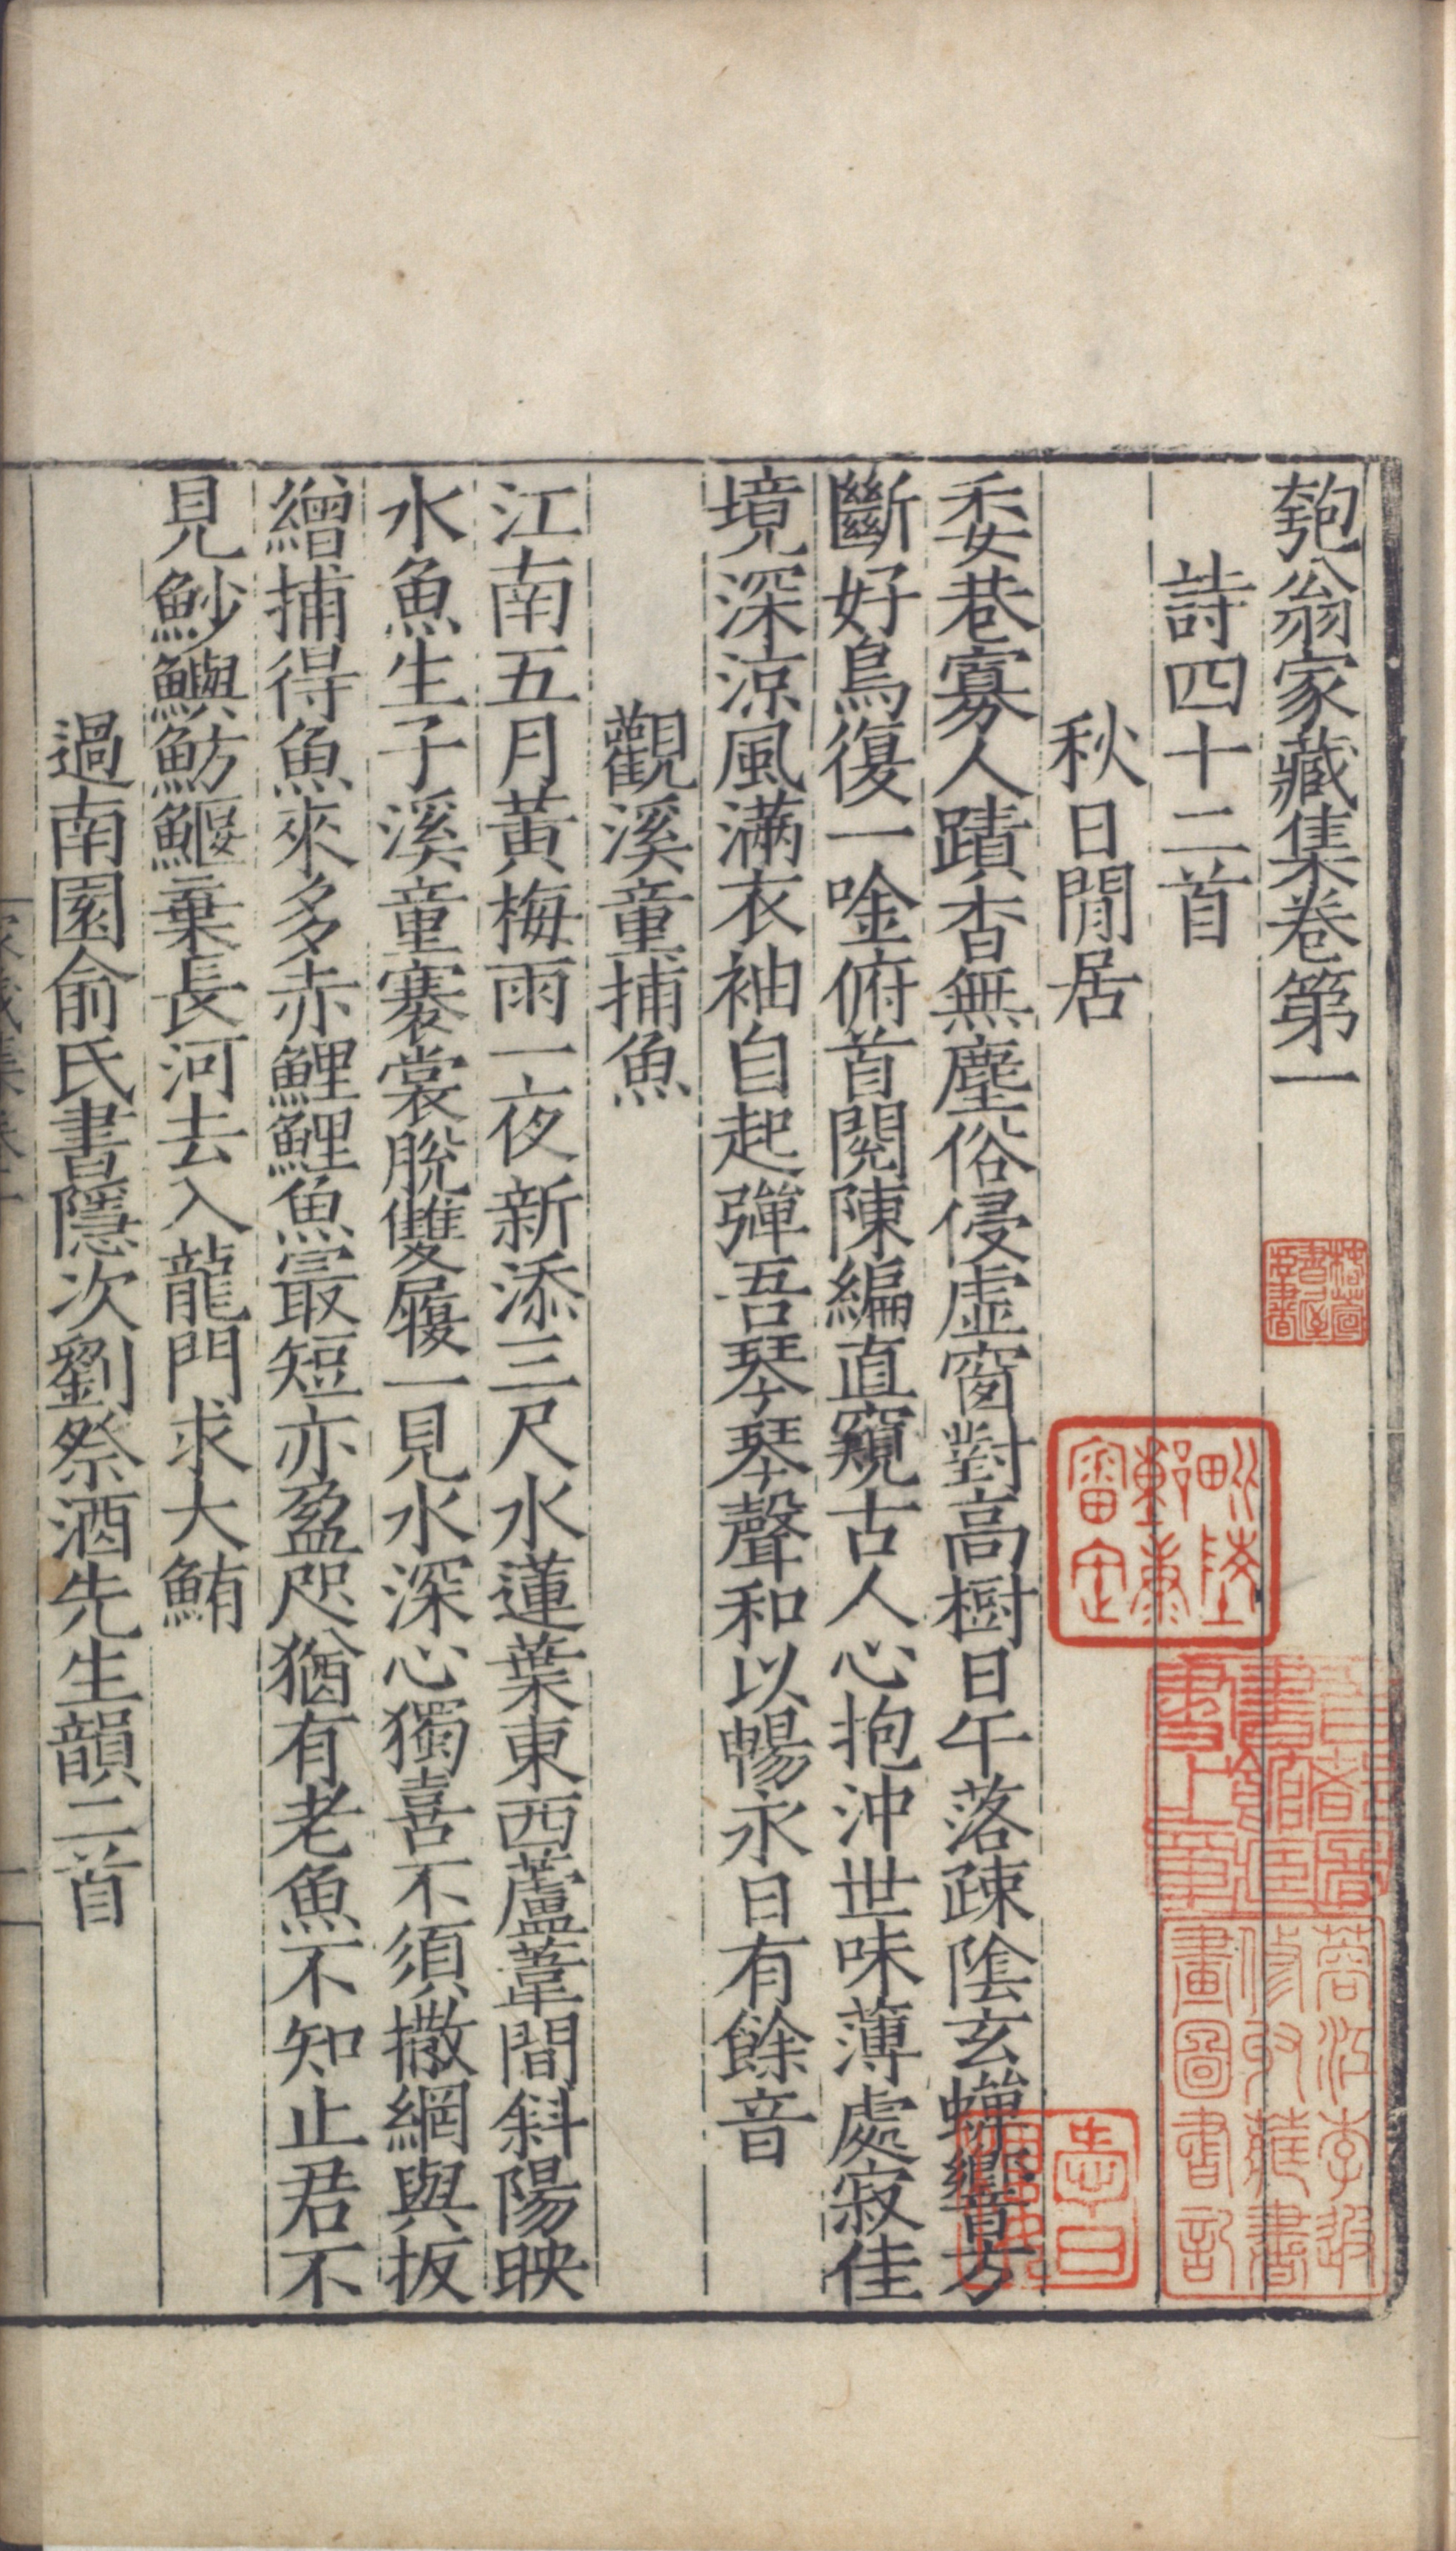 匏翁家藏集卷第一
詩四十二首
秋日閒居
委巷寡人蹟杳無塵俗侵虛窗對高樹日午落疎陰玄蟬響方
斷好鳥復一唫俯首閱陳編直窺古人心抱沖世味薄處寂佳
境深涼風滿衣袖自起彈吾琴琴聲和以暢永日有餘音
觀溪童捕魚
江南五月黃梅雨一夜新添三尺水蓮葉東西蘆葦間斜陽映
水魚生子溪童褰裳脫雙屨一見水深心獨喜不須撒網與扳
繒捕得魚來多赤鯉鯉魚最短亦盈咫猶有老魚不知止君不
見魦鱮魴鰋棄長河去入龍門求大鮪
過南園俞氏書隱次劉祭酒先生韻二首
毗陵
鄭齋
審定
蓉江李
收藏書
畫圖書記